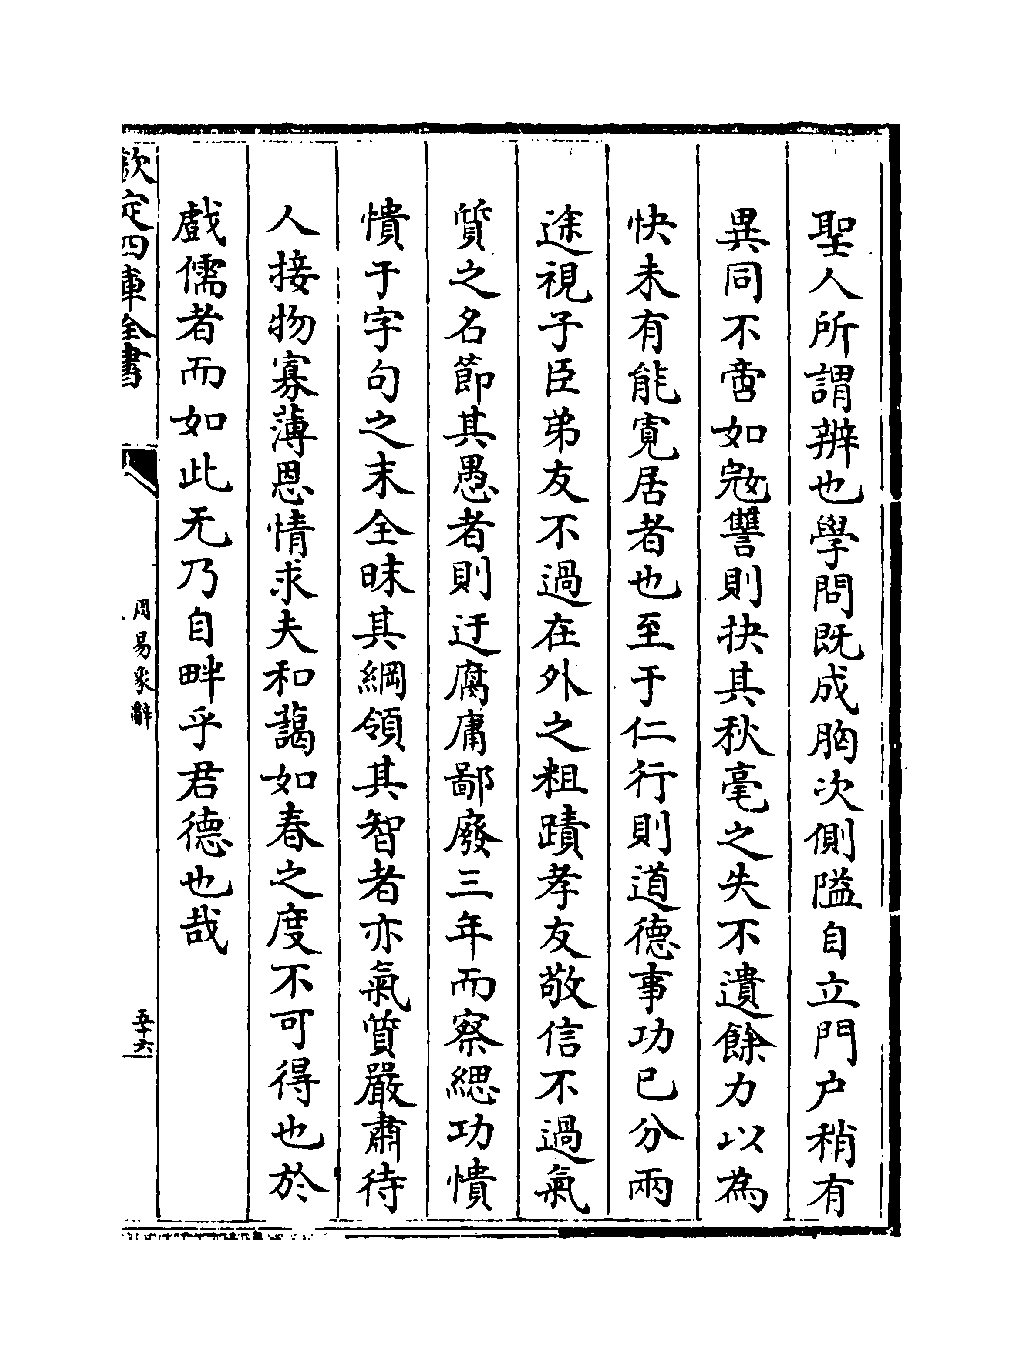 聖人所謂辨也學問既成胸次側隘自立門户稍有
異同不啻如寇讐則抉其秋毫之失不遺餘力以為
快未有能寛居者也至于仁行則道德事功已分兩
途視子臣弟友不過在外之粗蹟孝友敬信不過氣
質之名節其愚者則迂腐庸鄙廢三年而察緦功憒
憒于字句之末全昧其綱領其智者亦氣質嚴肅待
人接物寡薄恩情求夫和藹如春之度不可得也於
戲儒者而如此无乃自畔乎君德也哉
欽定四庫全書
周易象辭
五十六